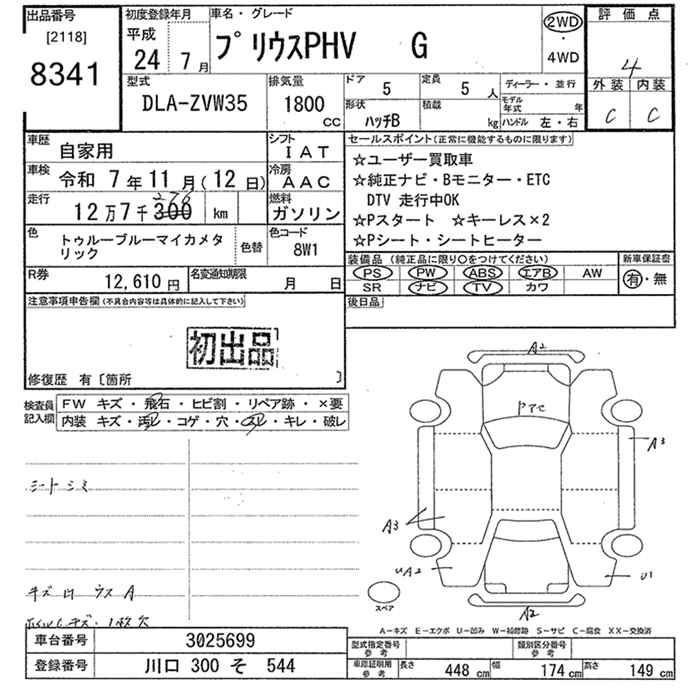 出品番号
[2118]
8341
初度登録年月
平成
24 年 7 月
車名・グレード
プリウスPHV G
2WD
・
4WD
評価点
4
外装 内装
C C
型式
DLA-ZVW35
排気量
1800 cc
ドア
5
定員
5 人
形状
ハッチB
積載
kg
ディーラー・並行
モデル年式 年
ハンドル 左・右
車歴
自家用
シフト
IAT
車検
令和 7 年 11 月 ( 12 日)
冷房
AAC
走行
12 万 7 千 300 km
278
燃料
ガソリン
色
トゥルーブルーマイカメタリック
色替
色コード
8W1
R券
12,610 円
名変通知期限
月 日
セールスポイント(正常に機能するものに限ります)
☆ユーザー買取車
☆純正ナビ・Bモニター・ETC
DTV 走行中OK
☆Pスタート ☆キーレス×2
☆Pシート・シートヒーター
装備品 (純正品に限り○をつけてください)
PS PW ABS エアB AW
SR ナビ TV カワ
新車保証書
有・無
後日品
注意事項申告欄(不具合内容等は具体的に記入して下さい)
初出品
修復歴 有〔箇所 〕
検査員記入欄
FW キズ・飛石・ヒビ割・リペア跡・×要
内装 キズ・汚れ・コゲ・穴・スレ・キレ・破レ
シートシミ
A2
A3
A3
UA2
U1
A2
スペア
A−キズ E−エクボ U−凹み W−補修跡 S−サビ C−腐食 XX−交換済
車台番号 3025699
登録番号 川口 300 そ 544
型式指定番号 参考
類別区分番号 参考
車庫証明用 参考
長さ 448 cm
幅 174 cm
高さ 149 cm